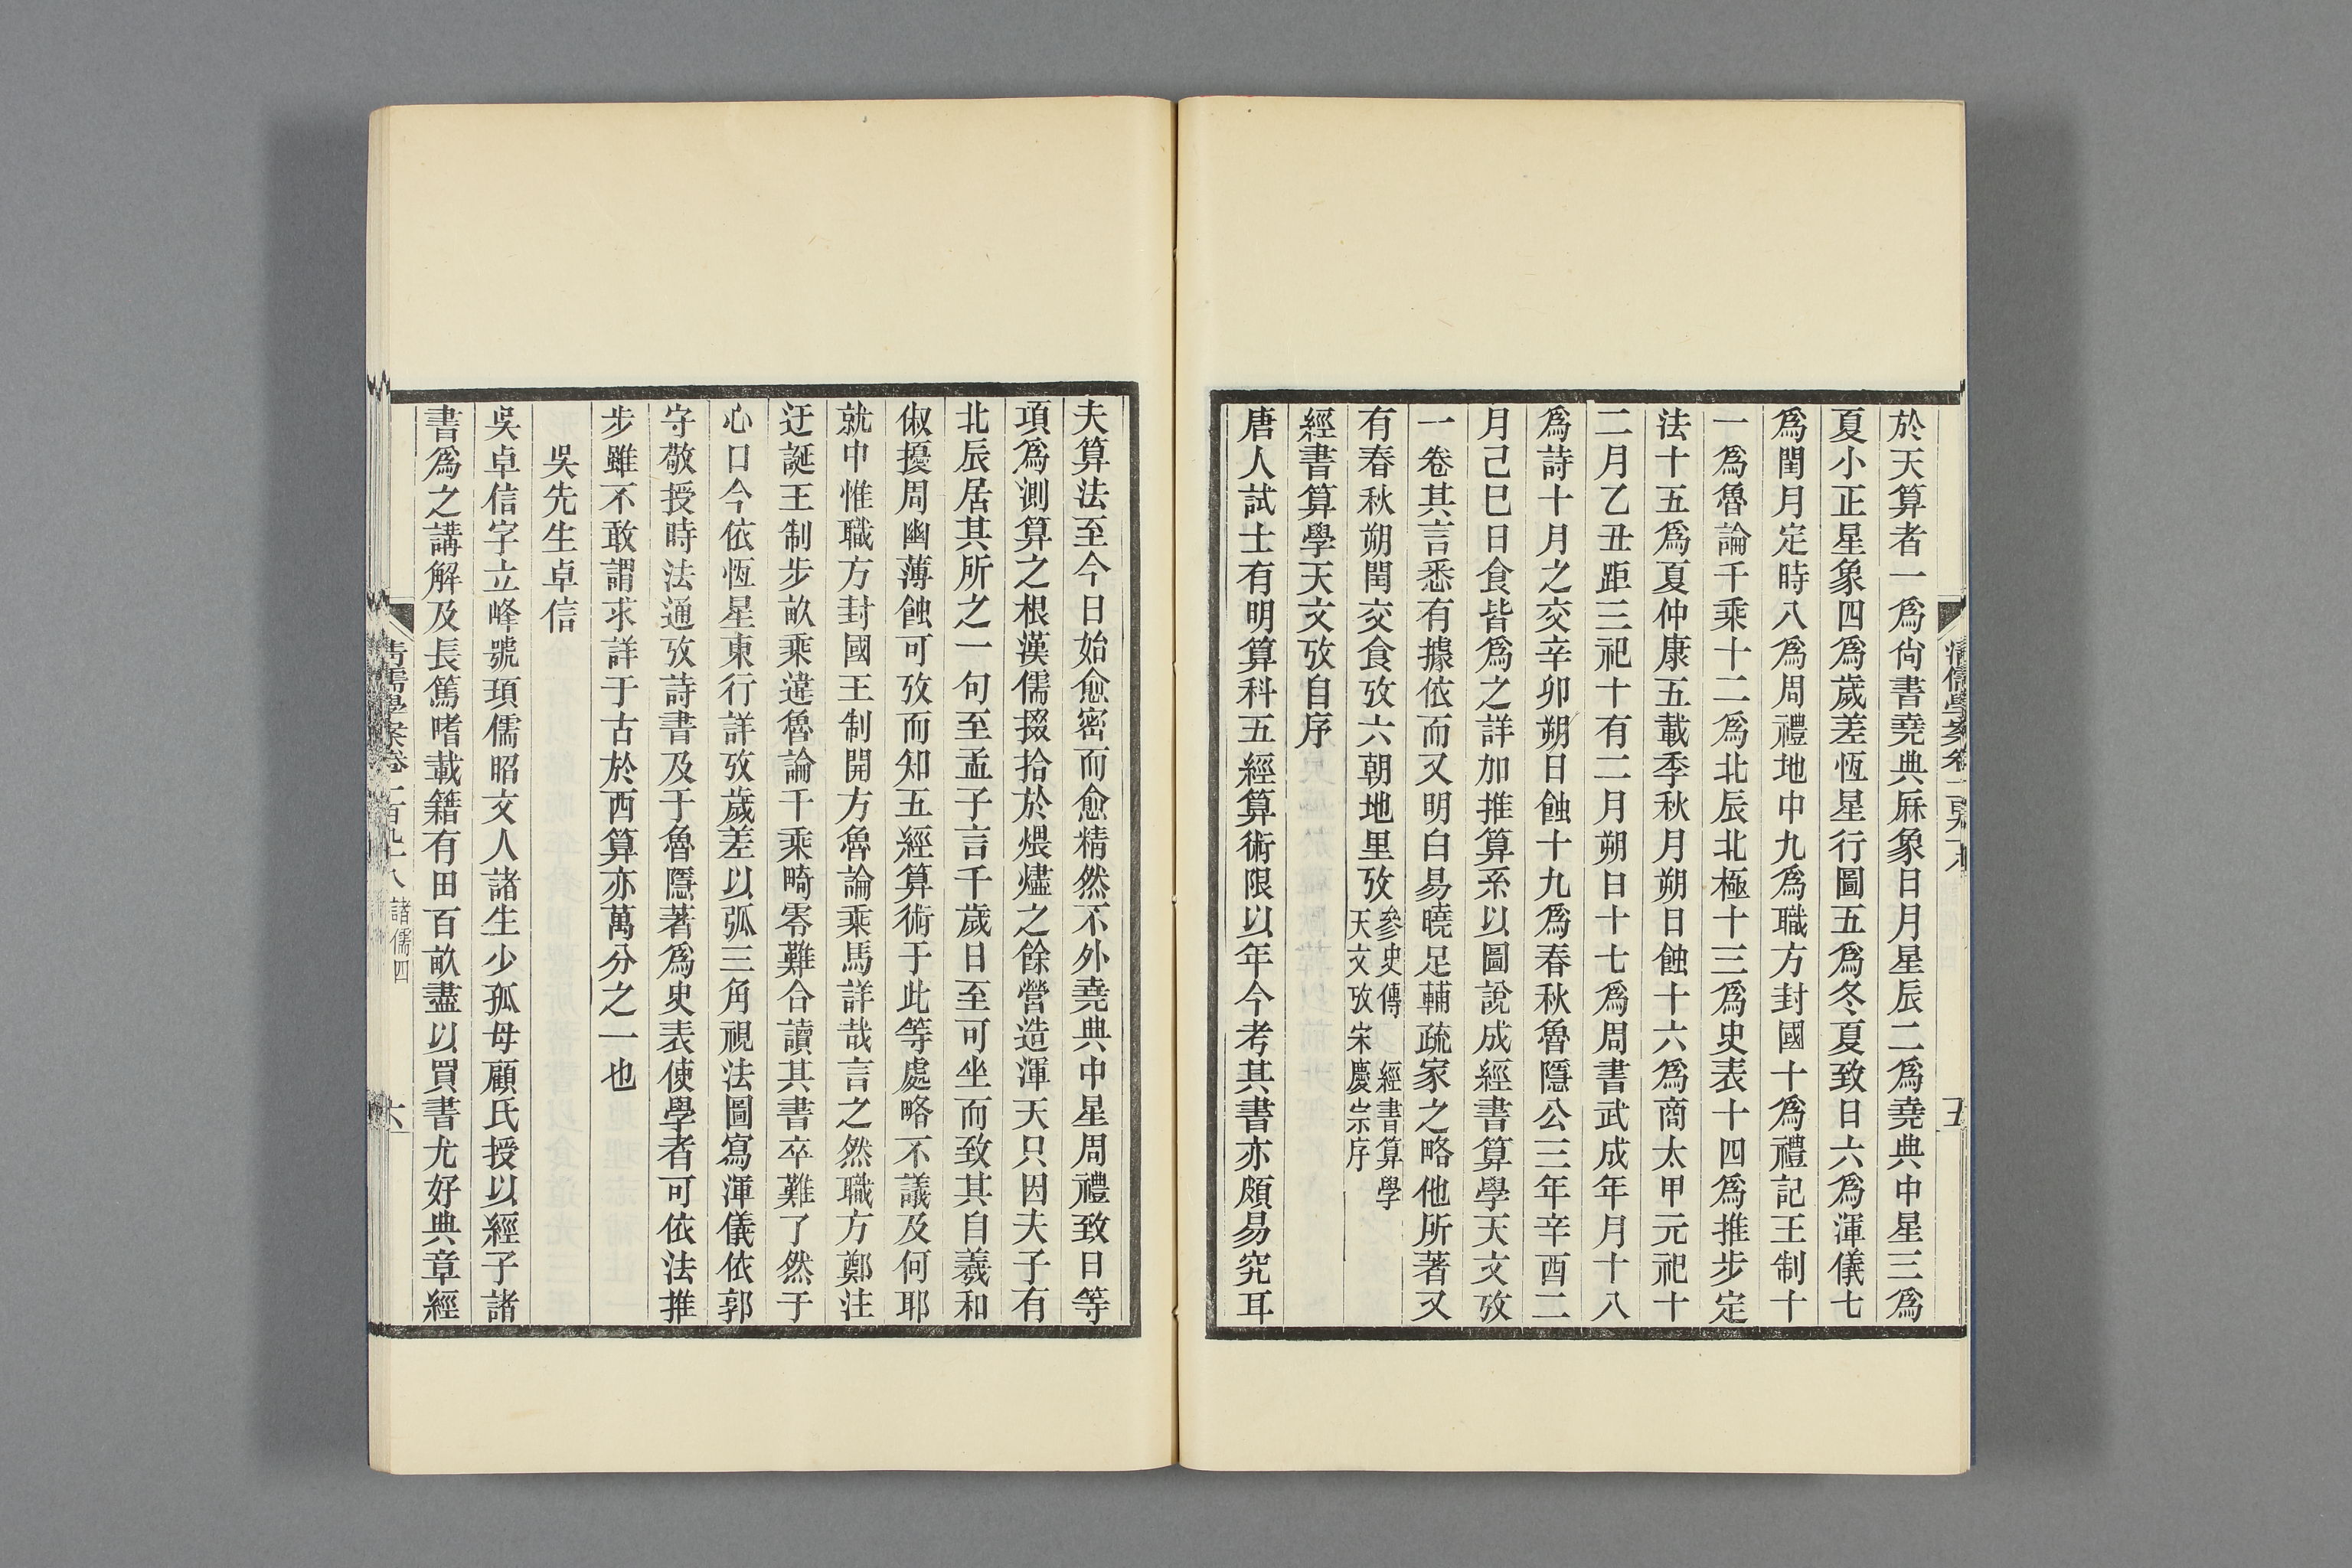 於天算者一爲尙書堯典厤象日月星辰二爲堯典中星三爲
夏小正星象四爲歲差恆星行圖五爲冬夏致日六爲渾儀七
爲閏月定時八爲周禮地中九爲職方封國十爲禮記王制十
一爲魯論千乘十二爲北辰北極十三爲史表十四爲推步定
法十五爲夏仲康五載季秋月朔日蝕十六爲商太甲元祀十
二月乙丑距三祀十有二月朔日十七爲周書武成年月十八
爲詩十月之交辛卯朔日蝕十九爲春秋魯隱公三年辛酉二
月己巳日食皆爲之詳加推算系以圖說成經書算學天文攷
一卷其言悉有據依而又明白易曉足輔疏家之略他所著又
有春秋朔閏交食攷六朝地里攷參史傳 經書算學
天文攷宋慶崇序
經書算學天文攷自序
唐人試士有明算科五經算術限以年今考其書亦頗易究耳
五
夫算法至今日始愈密而愈精然不外堯典中星周禮致日等
項爲測算之根漢儒掇拾於煨燼之餘營造渾天只因夫子有
北辰居其所之一句至孟子言千歲日至可坐而致其自羲和
俶擾周幽薄蝕可攷而知五經算術于此等處略不議及何耶
就中惟職方封國王制開方魯論乘馬詳哉言之然職方鄭注
迂誕王制步畝乘違魯論千乘畸零難合讀其書卒難了然于
心口今依恆星東行詳攷歲差以弧三角視法圖寫渾儀依郭
守敬授時法通攷詩書及于魯隱著爲史表使學者可依法推
步雖不敢謂求詳于古於西算亦萬分之一也
吳先生卓信
吳卓信字立峰號頊儒昭文人諸生少孤母顧氏授以經子諸
書爲之講解及長篤嗜載籍有田百畝盡以買書尤好典章經
清儒學案卷一百九十八 諸儒四
六